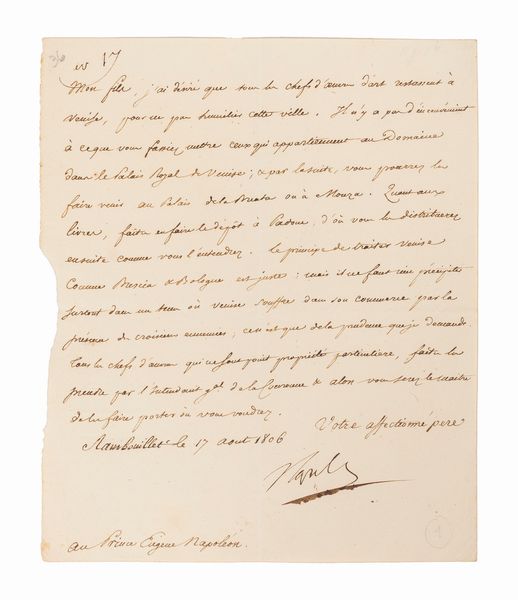 17
Mon fils, j'ai désiré que tous les chefs d'œuvre d'art restassent à
Venise, pour ne pas humilier cette ville. Il n'y a pas d'inconvénient
à ce que vous fassiez mettre ceux qui appartiennent au Domaine
dans le Palais Royal de Venise; & par la suite, vous pourrez les
faire venir au Palais de la Brenta ou à Monza. Quant aux
livres, faites en faire le dépôt à Padoue, d'où vous les distribuerez
ensuite comme vous l'entendrez. Le principe de traiter Venise
Comme Brescia & Bologne est juste: mais il ne faut rien précipiter
surtout dans un tems où Venise souffre dans son commerce par la
présence de croisières ennemies; ce n'est que de la prudence que je demande.
Tous les chefs d'œuvre qui ne sont point propriété particulière, faites les
prendre par l'Intendant gal de la Couronne & alors vous serez le maître
de les faire porter où vous voudrez.
Votre affectionné père
Rambouillet le 17 août 1806
au Prince Eugène Napoléon.